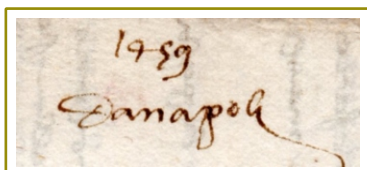 1459
Danapoli